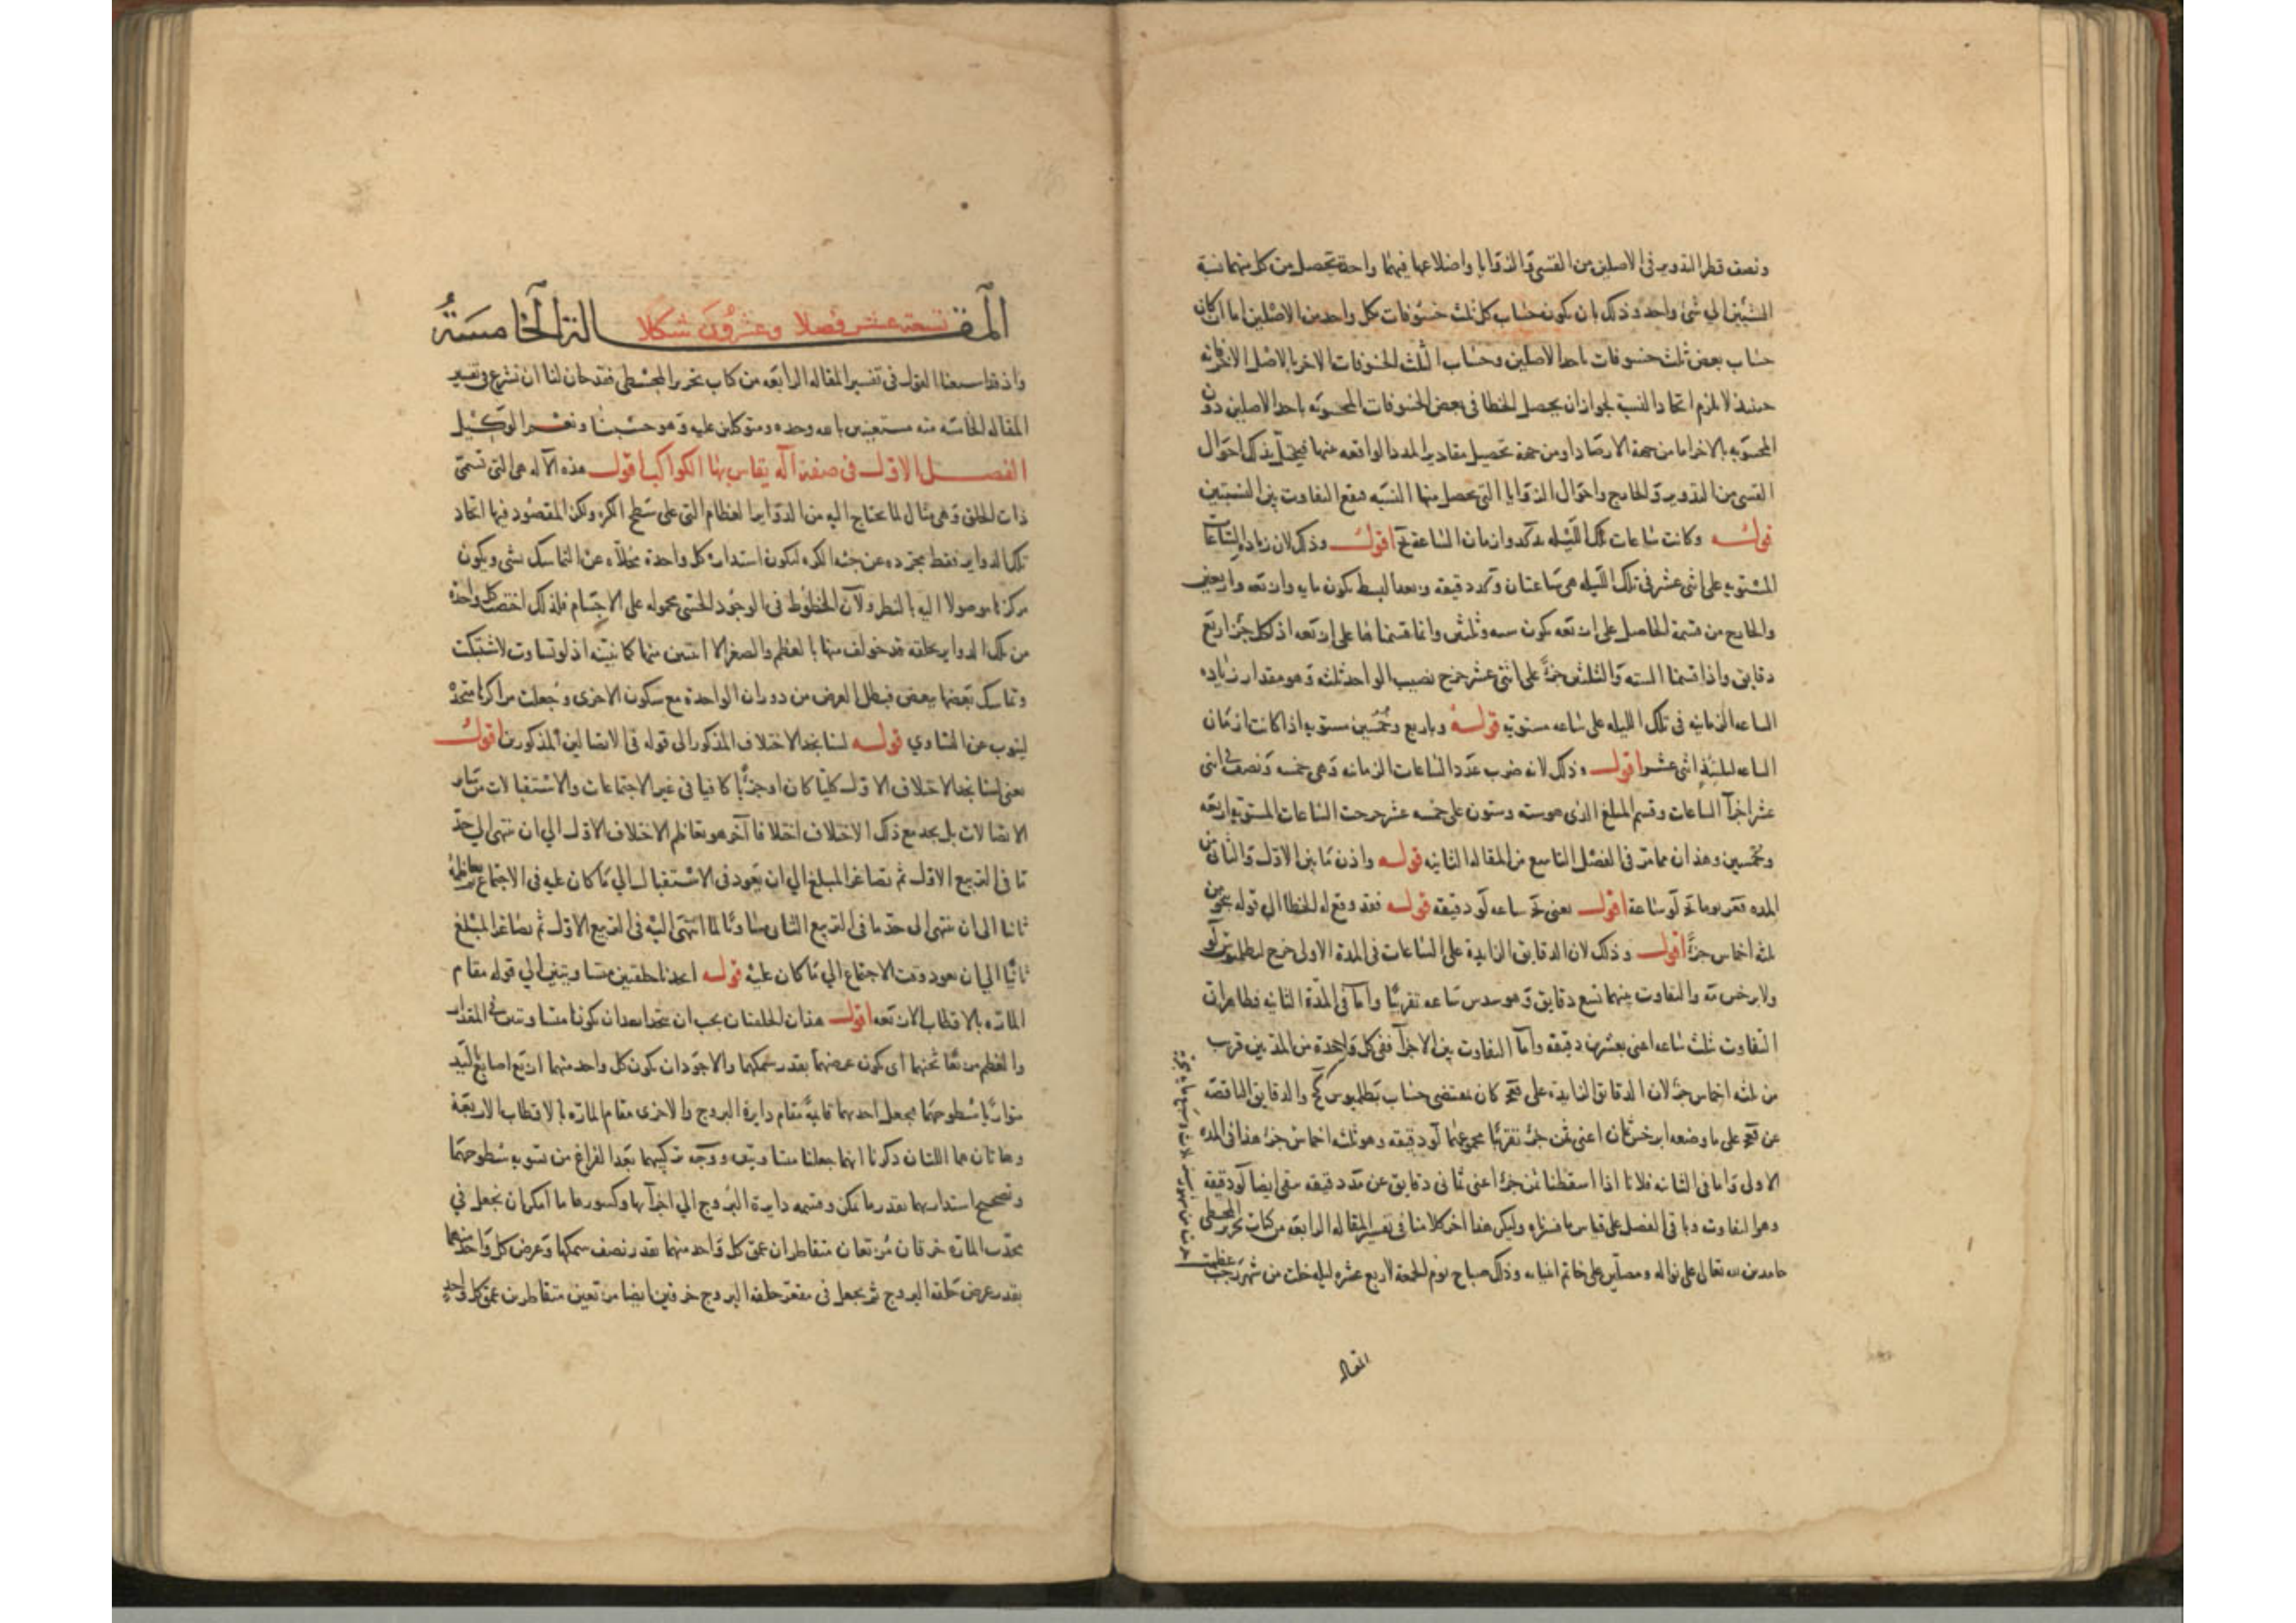 ونصف قطر التدوير فى الاصلين من القسى والزوايا واضلاعها فيهما واحدة تحصل من كل منهما نسبة
الشيئين الي شئ واحد وذلك بان يكون حساب كل ثلث خسوفات بكل واحد من الاصلين اما ان كان
حساب بعض ثلث خسوفات باحد الاصلين وحساب الثلث الخسوفات الاخر بالاصل الاخر فانه
حينئذ لا يلزم اتحاد النسب لجواز ان يحصل الخطا فى بعض الخسوفات المحسوبه باحد الاصلين دون
المحسوبه بالاخر اما من جهة الارصاد او من جهة تحصيل مقادير المدد الواقعه بينها فيختل بذلك احوال
القسى من التدوير والخارج واحوال الزوايا التى يحصل منها النسبه فيقع التفاوت بين النسبتين
قوله وكانت ساعات تلك الليله وازمان الساعة يح اقول وذلك لان زياده الساعات
المستويه على اثنى عشر فى تلك الليله هى ساعتان وكد دقيقه وبعد البسط يكون مايه واربعه واربعين
والخارج من قسمة الحاصل على اربعه يكون سته وثلثين وانما قسمناها على اربعه اذ لكل جزء اربع
دقايق واذا قسمنا السته والثلثين جزءا على اثنى عشر خرج نصيب الواحد ثلثه وهو مقدار زياده
الساعه الزمانيه فى تلك الليله على ساعه مستويه قوله وباربع وخمسين مستويه اذا كانت ازمان
الساعه الليليه اثنى عشر اقول وذلك لانه ضرب عدد الساعات الزمانيه وهى خمسه ونصف فى اثنى
عشر اجزآ الساعات وقسم المبلغ الذى هو سته وستون على خمسه عشر خرجت الساعات المستويه اربعه
وخمسين وهذان مما مر فى الفصل التاسع من المقاله الثانيه قوله واذن ما بين الاول والثانى من
المده قعز يوما يح لو ساعة اقول يعنى يح ساعه لو دقيقه قوله فقد وقع له الخطا الي قوله بنحو من
ثلثه اخماس جزءٍ اقول وذلك لان الدقايق الزايدة على الساعات فى المدة الاولى خرج لبطلميوس لو
ولابرخس مه والتفاوت بينهما تسع دقايق وهو سدس ساعه تقريبا واما فى المدة الثانيه فظاهر ان
التفاوت ثلث ساعه اعنى بعشرين دقيقه واما التفاوت بين الاجزآ ففى كل واحدة من المدتين قريب
من ثلثه اخماس جزء لان الدقايق الزايدة على قعج كان بمقتضى حساب بطلميوس كح والدقايق الناقصه
عن قعج على ما وضعه ابرخس ثمان اعنى ثمن جزء تقريبا مجموعهما لو دقيقه وهو ثلثه اخماس جزء هذا فى المده
الاولى واما فى الثانيه فلانا اذا اسقطنا ثمن جزء اعنى ثمانى دقايق عن مد دقيقه بقى ايضا لو دقيقه
وهو التفاوت وباقى الفصل على قياس ما فسرناه وليكن هذا اخر كلامنا فى تفسير المقاله الرابعه من كتاب تحرير المجسطى
حامدين لله تعالى على نواله ومصلين على خاتم انبيائه وذلك صباح يوم الجمعة لاربع عشره ليله خلت من شهر رجب
المقاله
المقـالة الخامسَةُ
تسعه عشر فصلا وعشرُونَ شكلا
واذ قد اسمعنا القول فى تفسير المقاله الرابعه من كتاب تحرير المجسطى فقد حان لنا ان نشرع فى تفسير
المقاله الخامسه منه مستعينين بالله وحده ومتوكلين عليه وهو حسبنا ونعم الوكيل
الفصل الاول فى صنعة آله يقاس بها الكواكب اقول هذه الآله هى التى تسمى
ذات الحلق وهى مثال لما يحتاج اليه من الدواير العظام التى على سطح الكره ولكن المقصود فيها اتخاد
تلك الدواير فقط مجرده عن جثة الكره لتكون استدارة كل واحدة مخلاه عن التماسك بشى ويكون
مركزها موصولا اليه بالنظر ولان الخطوط فى الوجود الحسى محموله على الاجسام فلذلك اختص كل واحدة
من تلك الدواير بحلقه قد خولف بينها بالعظم والصغر الا اثنتين منها كما نبينه اذ لو تساوت لاشتبكت
وتماسك بعضها ببعض فبطل الغرض من دوران الواحدة مع سكون الاخرى وجعلت مراكزها متحدة
لينوب عن التساوي قوله لسنا نجد الاختلاف المذكور الى قوله فى الاتصالين المذكورين اقول
يعنى لسنا نجد الاختلاف الاول كليا كان او جزئيا كافيا فى غير الاجتماعات والاستقبالات من ساير
الاتصالات بل نجد مع ذلك الاختلاف اختلافا آخر هو تعاظم الاختلاف الاول الي ان ينتهى الي حد
ما فى التربيع الاول ثم تصاغر المبلغ الي ان يعود فى الاستقبال الي ما كان عليه فى الاجتماع ثم تعاظمه
ثانيا الى ان ينتهى الى حد ما فى التربيع الثانى مساويا لما انتهى اليه فى التربيع الاول ثم تصاغر المبلغ
ثانيا الي ان يعود وقت الاجتماع الي ما كان عليه قوله اعددنا حلقتين متساويتين الي قوله مقام
المارة بالاقطاب الاربعه اقول هذان الحلقتان يجب ان يتخذا بعد ان يكونا متساويتين فى المقدار
والعظم مربعا ثخنهما اى يكون عرضهما بقدر سمكهما والاجود ان يكون كل واحد منهما اربع اصابع لتبد
متوازيا سطوحهما فيجعل احديهما قايمة مقام دايرة البروج والاخرى مقام المارة بالاقطاب الاربعة
وهاتان هما اللتان ذكرنا انهما جعلتا متساويتين ووجه تركيبهما بعد الفراغ من تسويه سطوحهما
وتصحيح استدارتهما بقدر ما يمكن وقسمه دايرة البروج الي اجزآئها وكسورها ما امكن ان نجعل في
محدب المارة خرقان مربعان متقاطران عمق كل واحد منهما بقدر نصف سمكها وعرض كل واحد منهما
بقدر عرض حلقة البروج ثم يجعل فى مقعر حلقة البروج خرقين ايضا مربعين متقاطرين عمق كل واحد